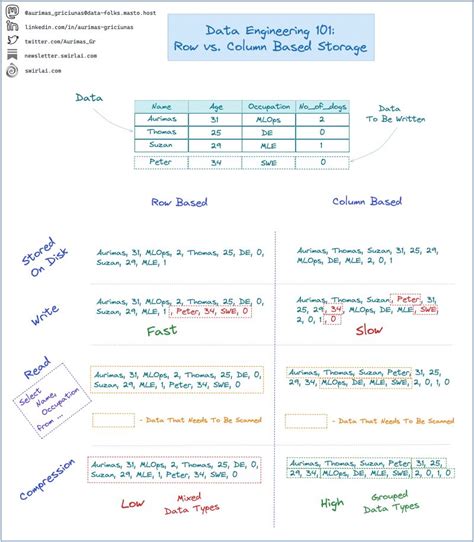 @aurimas_griciunas@data-folks.masto.host
linkedin.com/in/aurimas-griciunas
twitter.com/Aurimas_Gr
newsletter.swirlai.com
swirlai.com
Data Engineering 101:
Row vs. Column Based Storage
Data
Name Age Occupation No_of_dogs
Aurimas 31 MLOps 2
Thomas 25 DE 0
Suzan 29 MLE 1
Peter 34 SWE 0
Data
To Be Written
Row Based
Column Based
Stored
On Disk
Aurimas, 31, MLOps, 2, Thomas, 25, DE, 0,
Suzan, 29, MLE, 1
Aurimas, Thomas, Suzan, 31, 25, 29,
MLOps, DE, MLE, 2, 0, 1
Write
Aurimas, 31, MLOps, 2, Thomas, 25, DE, 0,
Suzan, 29, MLE, 1, Peter, 34, SWE, 0
Fast
Aurimas, Thomas, Suzan, Peter, 31,
25, 29, 34, MLOps, DE, MLE, SWE,
2, 0, 1, 0
Slow
Read
Select
Name,
Occupation
From ...
Aurimas, 31, MLOps, 2, Thomas, 25, DE, 0,
Suzan, 29, MLE, 1, Peter, 34, SWE, 0
- Data That Needs To Be Scanned
Aurimas, Thomas, Suzan, Peter, 31, 25,
29, 34, MLOps, DE, MLE, SWE, 2, 0, 1, 0
- Data That Needs To Be Scanned
Compression
Aurimas, 31, MLOps, 2, Thomas, 25, DE, 0,
Suzan, 29, MLE, 1, Peter, 34, SWE, 0
Low
Mixed
Data Types
Aurimas, Thomas, Suzan, Peter, 31, 25,
29, 34, MLOps, DE, MLE, SWE, 2, 0, 1, 0
High
Grouped
Data Types